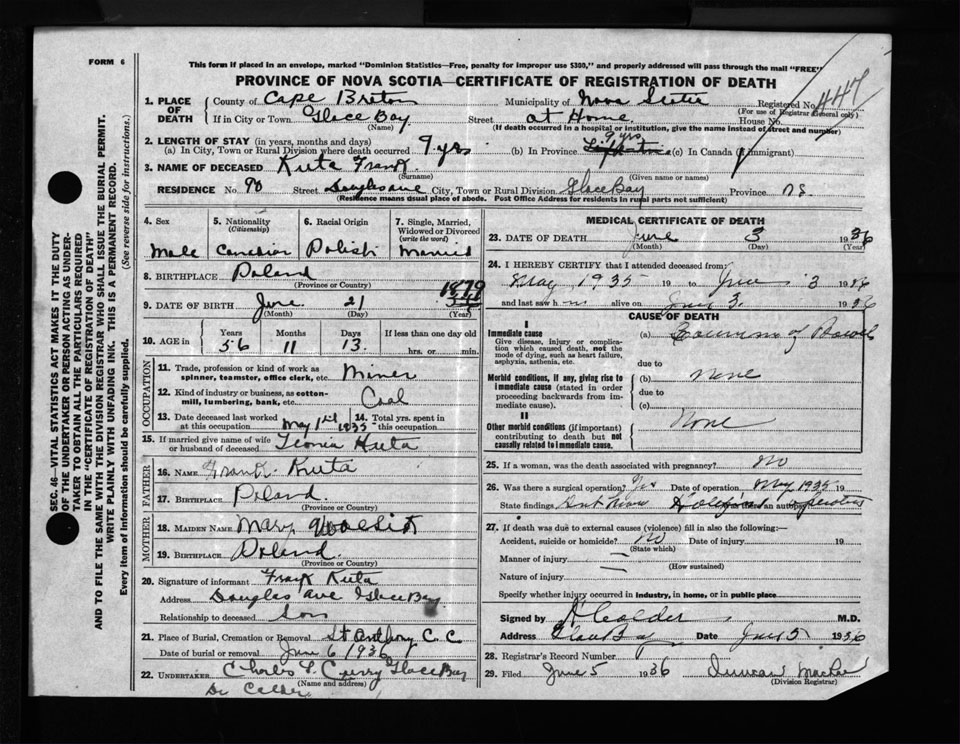 FORM 6
This form if placed in an envelope, marked "Dominion Statistics—Free, penalty for improper use $300," and properly addressed will pass through the mail "FREE"
PROVINCE OF NOVA SCOTIA—CERTIFICATE OF REGISTRATION OF DEATH
447
1. PLACE OF DEATH County of Cape Breton Municipality of Nova Scotia Registered No.
(For use of Registrar General only)
If in City or Town Glace Bay Street at Home House No.
(Name) (If death occurred in a hospital or institution, give the name instead of street and number)
2. LENGTH OF STAY (in years, months and days)
(a) In City, Town or Rural Division where death occurred 9 yrs (b) In Province 9 yrs (c) In Canada (if immigrant)
3. NAME OF DECEASED Kuta Frank
(Surname) (Given name or names)
RESIDENCE No. 90 Street Douglas ave City, Town or Rural Division Glace Bay Province N.S.
(Residence means usual place of abode. Post Office Address for residents in rural parts not sufficient)
4. Sex Male
5. Nationality (Citizenship) Canadian
6. Racial Origin Polish
7. Single, Married, Widowed or Divorced (write the word) Married
8. BIRTHPLACE Poland
(Province or Country)
9. DATE OF BIRTH June 21 1879
(Month) (Day) (Year)
10. AGE in Years Months Days If less than one day old
56 11 13. hrs. or min.
OCCUPATION
11. Trade, profession or kind of work as spinner, teamster, office clerk, etc. Miner
12. Kind of industry or business, as cotton-mill, lumbering, bank, etc. Coal
13. Date deceased last worked at this occupation May 1935
14. Total yrs. spent in this occupation
15. If married give name of wife or husband of deceased Kuta
FATHER
16. NAME Frank Kuta
17. BIRTHPLACE Poland.
(Province or Country)
MOTHER
18. MAIDEN NAME Mary
19. BIRTHPLACE Poland.
(Province or Country)
20. Signature of informant Frank Kuta
Address Douglas Ave Glace Bay
Relationship to deceased Son
21. Place of Burial, Cremation or Removal St Anthony C. C
Date of burial or removal June 6 1936
22. UNDERTAKER Charles Curry Glace Bay
(Name and address)
Dr Calder
MEDICAL CERTIFICATE OF DEATH
23. DATE OF DEATH June 3 1936
(Month) (Day) (Year)
24. I HEREBY CERTIFY that I attended deceased from:
May 1935 19 to June 3 1936
and last saw him alive on June 3. 1936
CAUSE OF DEATH
I
Immediate cause (a) of Bowel
Give disease, injury or complication which caused death, not the mode of dying, such as heart failure, asphyxia, asthenia, etc.
due to
Morbid conditions, if any, giving rise to immediate cause (stated in order proceeding backwards from immediate cause).
(b) none
due to
(c)
II
Other morbid conditions (if important) contributing to death but not causally related to immediate cause. None
25. If a woman, was the death associated with pregnancy? No
26. Was there a surgical operation? Yes Date of operation May 1935
State findings
27. If death was due to external causes (violence) fill in also the following:—
Accident, suicide or homicide? No Date of injury 19
(State which)
Manner of injury —
(How sustained)
Nature of injury —
Specify whether injury occurred in industry, in home, or in public place
Signed by A Calder M.D.
Address Glace Bay Date June 5 1936
28. Registrar's Record Number
29. Filed June 5 1936 Duncan
(Division Registrar)
SEC. 46—VITAL STATISTICS ACT MAKES IT THE DUTY OF THE UNDERTAKER OR PERSON ACTING AS UNDERTAKER TO OBTAIN ALL THE PARTICULARS REQUIRED IN THE "CERTIFICATE OF REGISTRATION OF DEATH" AND TO FILE THE SAME WITH THE DIVISION REGISTRAR WHO SHALL ISSUE THE BURIAL PERMIT.
WRITE PLAINLY WITH UNFADING INK. THIS IS A PERMANENT RECORD.
Every item of information should be carefully supplied. (See reverse side for instructions.)